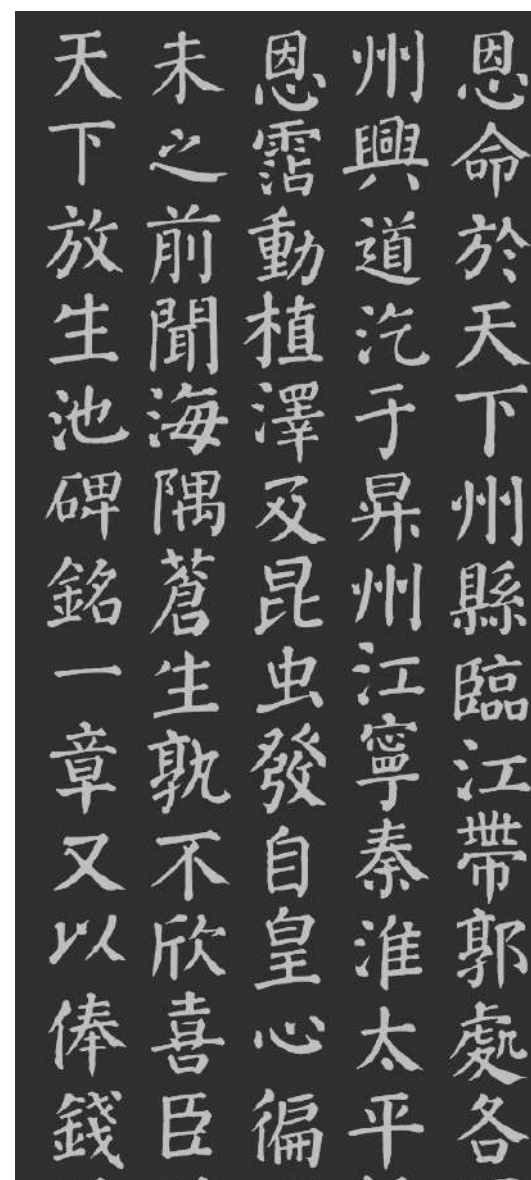 恩命於天下州縣臨江帶郭處各
州興道汔于昇州江寧秦淮太平
恩霑動植澤及昆虫發自皇心徧
未之前聞海隅蒼生孰不欣喜臣
天下放生池碑銘一章又以俸錢